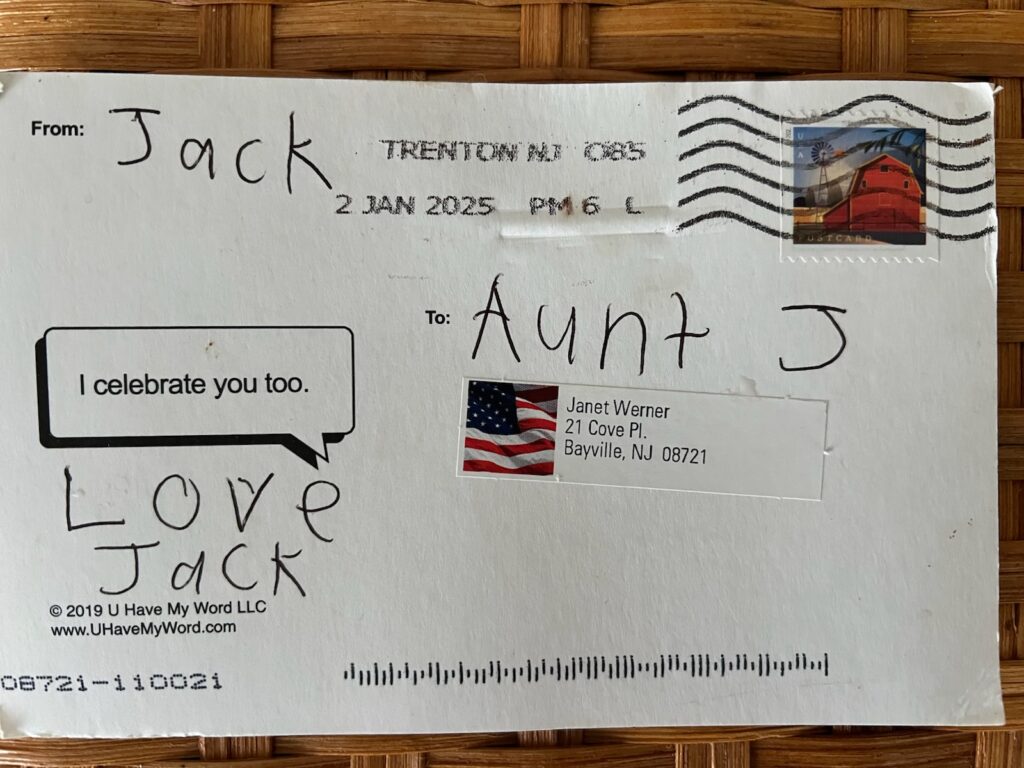 From: Jack
TRENTON NJ 085
2 JAN 2025 PM 6 L
USA
POSTCARD
To: Aunt J
I celebrate you too.
Janet Werner
21 Cove Pl.
Bayville, NJ 08721
Love
Jack
© 2019 U Have My Word LLC
www.UHaveMyWord.com
08721-110021